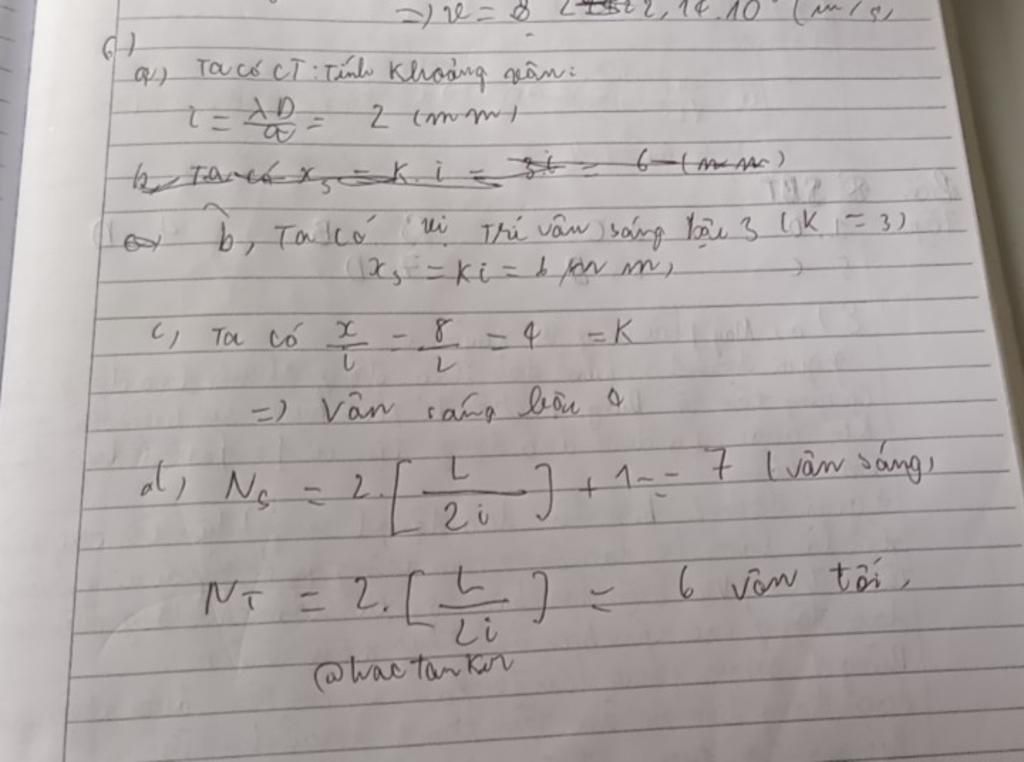 =) v = 8 2,14.10 (m/s)
6)
a,) Ta có CT: Tính Khoảng vân:
i = λD/a = 2 (mm)
b, Ta có x₃ = K.i = 3i = 6 (mm)
b, Ta có vị trí vân sáng bậc 3 (K = 3)
x₃ = Ki = 6 mm,
c, Ta có x/i = 8/2 = 4 = K
=) Vân sáng bậc 4
d, Ns = 2.[L/2i] + 1 = 7 (vân sáng)
NT = 2.[L/2i] = 6 vân tối,